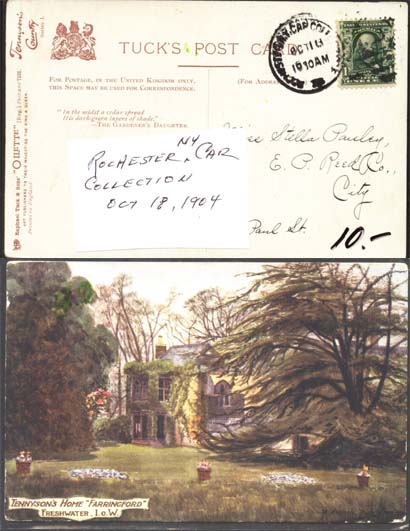 Tennyson's
Country
Series I.
TUCK'S POST CARD
FOR POSTAGE, IN THE UNITED KINGDOM ONLY,
THIS SPACE MAY BE USED FOR CORRESPONDENCE.
(FOR ADDR
"In the midst a cedar spread
His dark-green layers of shade."
—THE GARDENER'S DAUGHTER.
Raphael Tuck & Sons' "OILETTE"
ART PUBLISHERS TO THEIR MAJESTIES THE KING & QUEEN.
ROCHESTER CAR COLL
OCT 18
10AM
ROCHESTER, NY CAR
COLLECTION
OCT 18, 1904
Stella Pauley,
E. P. Reed Co.,
City
Paul St.
10.-
TENNYSON'S HOME "FARRINGFORD"
FRESHWATER, I.O.W.